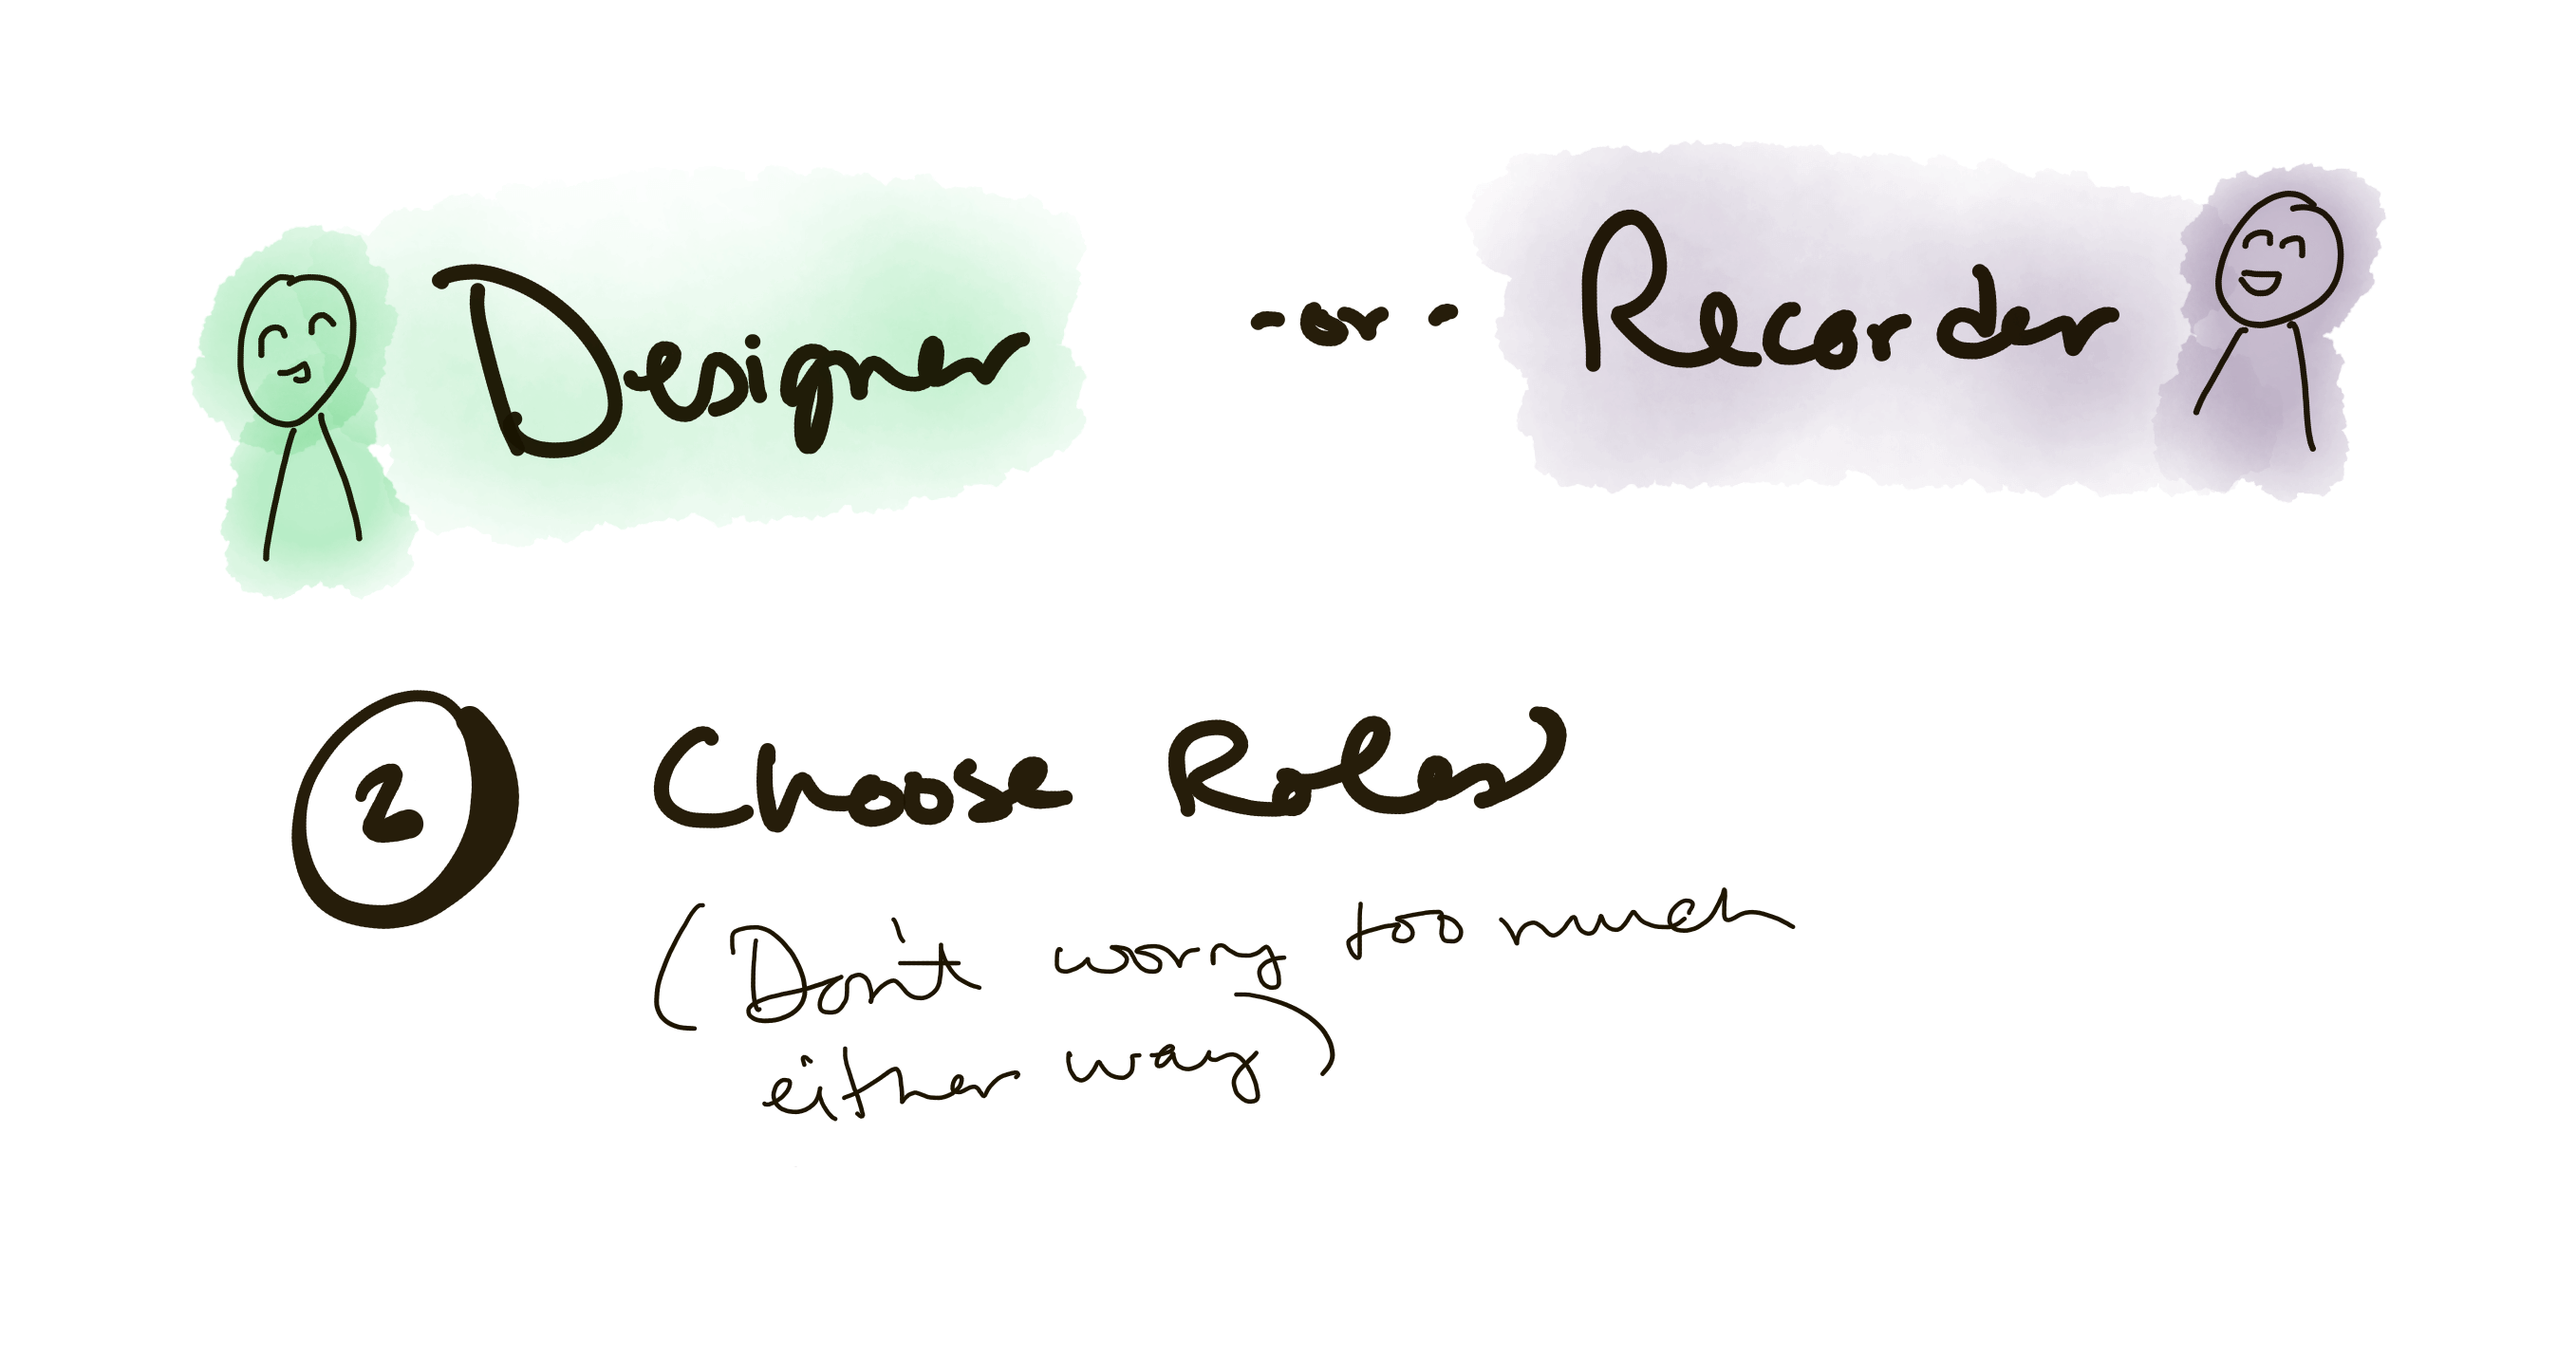 Designer -or- Recorder
2 Choose Roles
(Don't worry too much
either way)